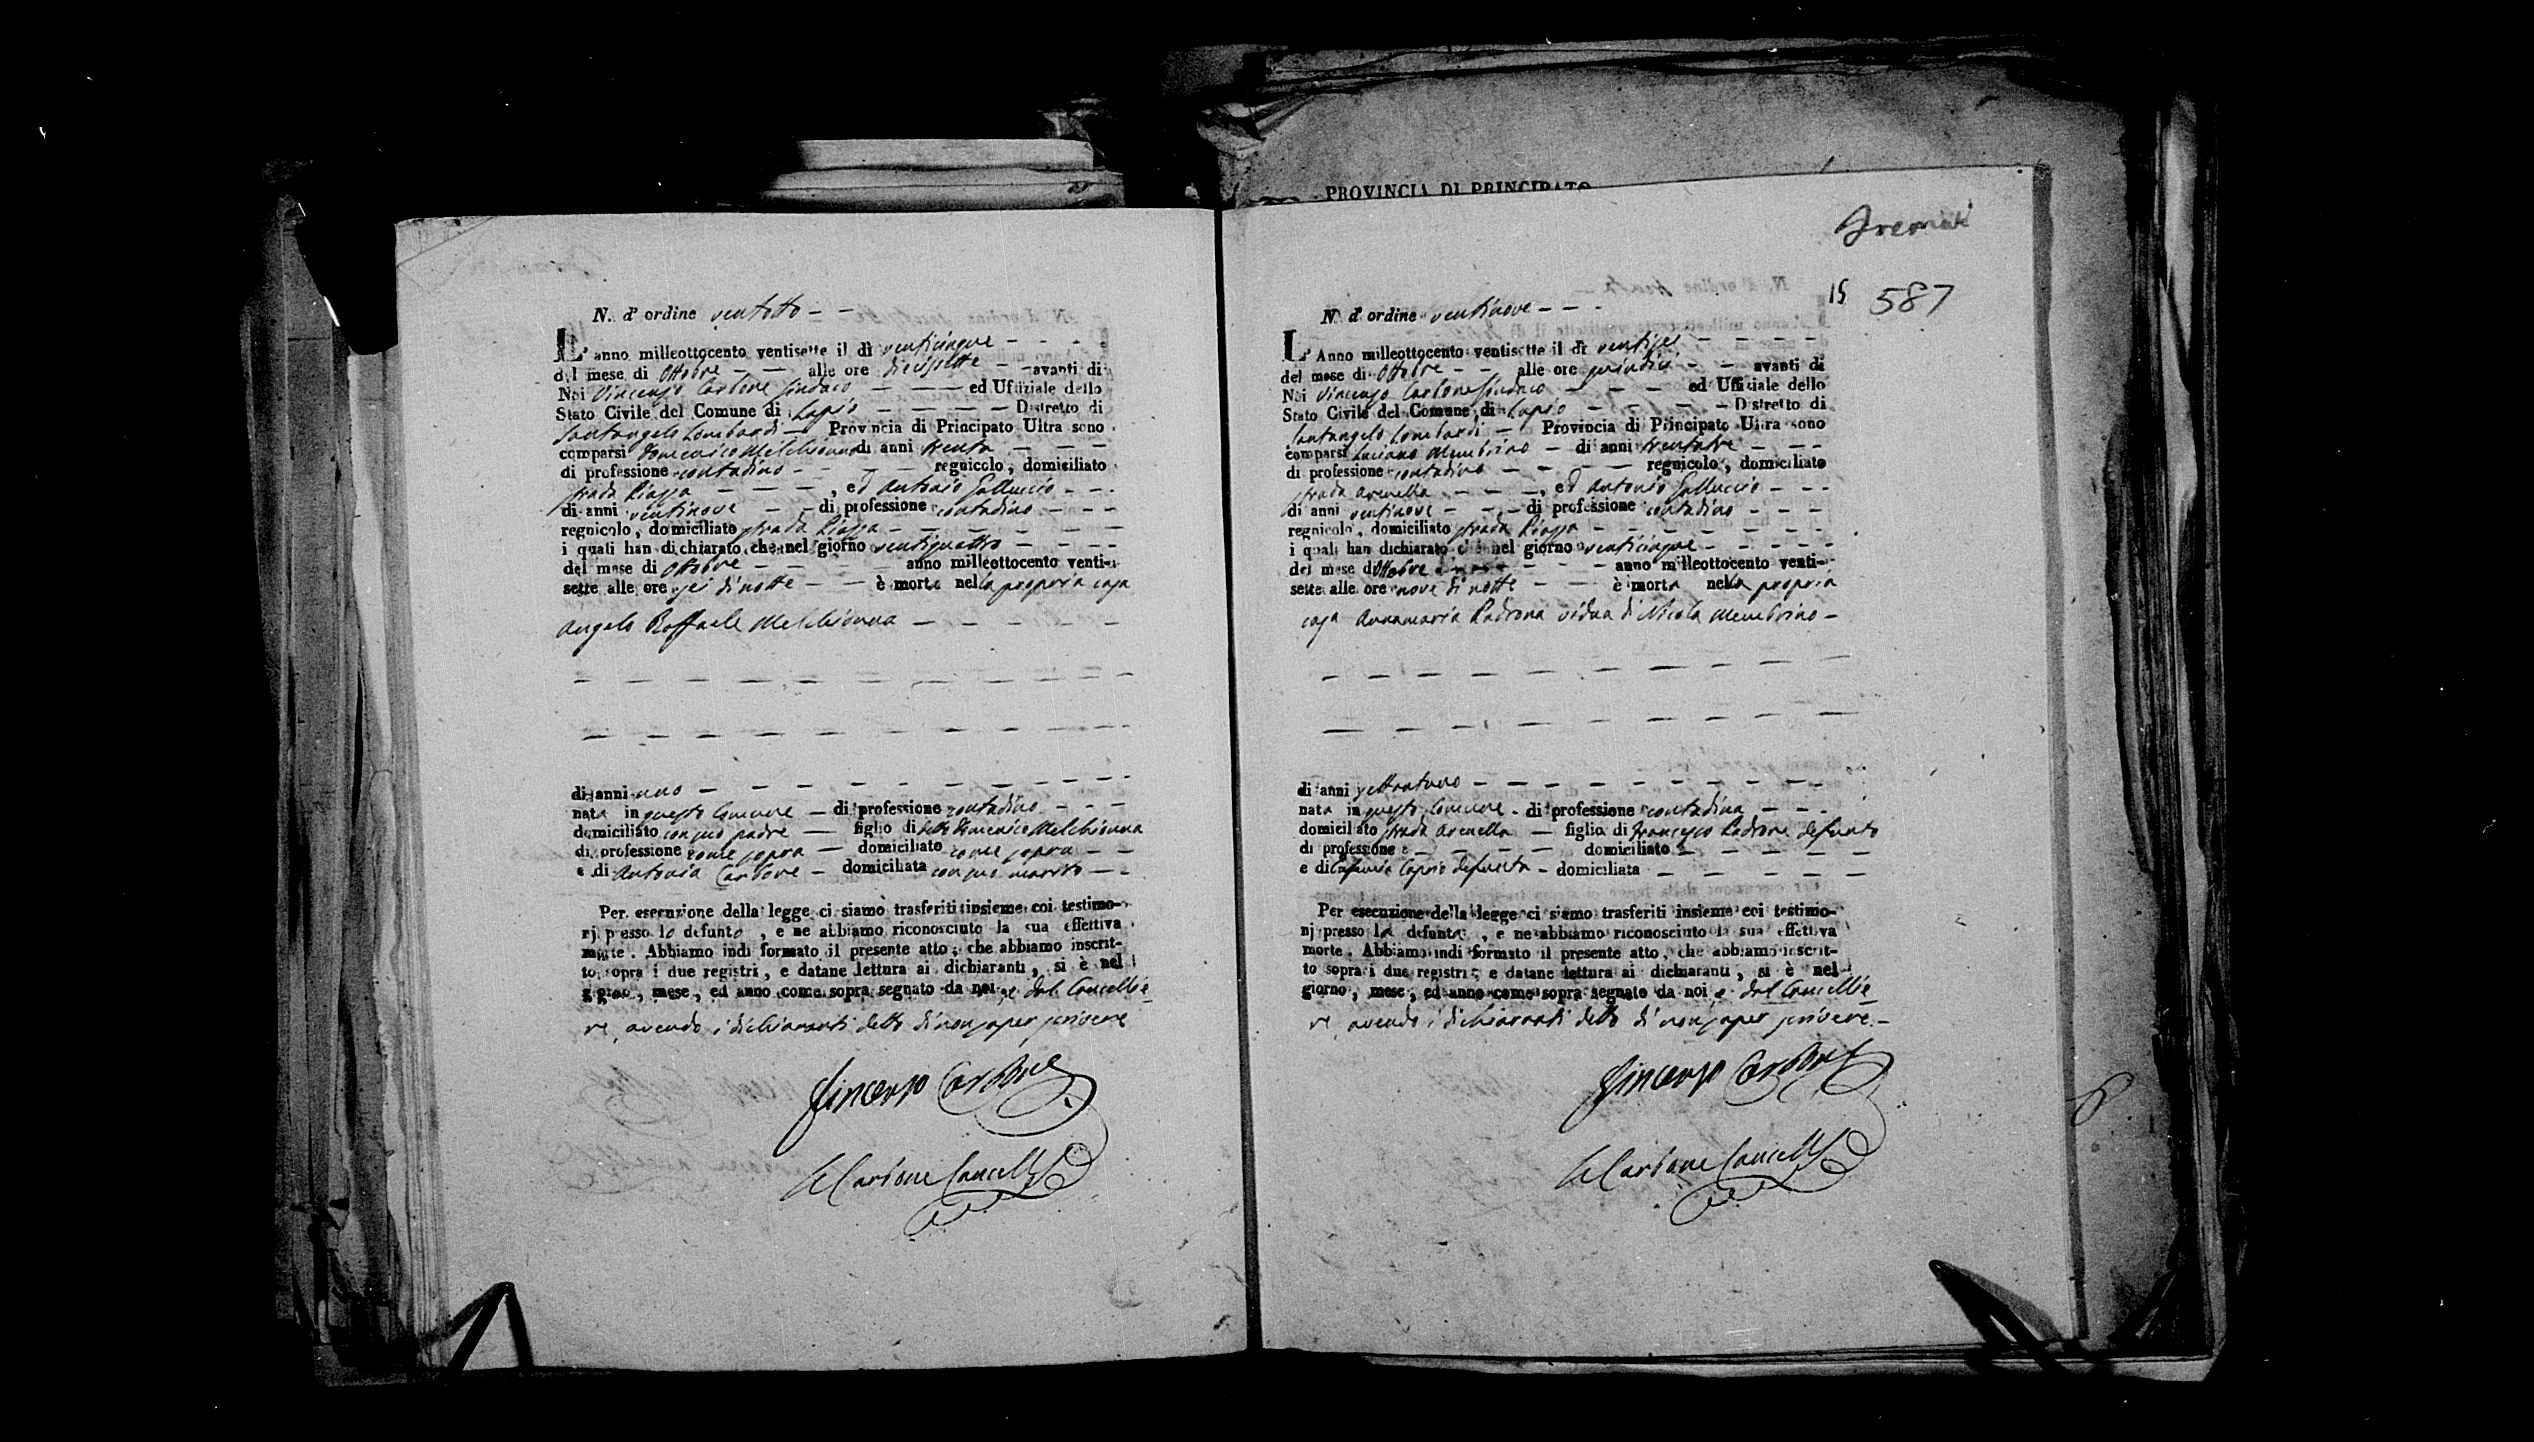 PROVINCIA DI PRINCIPATO
N. d' ordine ventotto
L' anno milleottocento ventisette il dì venticinque
del mese di Ottobre alle ore diecissette avanti di
Noi Vincenzo Carbone Sindaco ed Uffiziale dello
Stato Civile del Comune di Lapio Distretto di
Santangelo Lombardi Provincia di Principato Ultra sono
comparsi Domenico Melchionna di anni trenta
di professione contadino regnicolo, domiciliato
strada Piazza, ed Antonio Galluccio
di anni ventinove di professione contadino
regnicolo, domiciliato strada Piazza
i quali han dichiarato che nel giorno ventiquattro
del mese di Ottobre anno milleottocento venti-
sette alle ore sei di notte è morto nella propria casa
Angelo Raffaele Melchionna
di anni uno
nata in questo Comune di professione contadino
domiciliato con suo padre figlio di detto Domenico Melchionna
di professione come sopra domiciliato come sopra
e di Antonia Carbone domiciliata con suo marito
Per esecuzione della legge ci siamo trasferiti insieme coi testimo-
nj presso lo defunto, e ne abbiamo riconosciuto la sua effettiva
morte. Abbiamo indi formato il presente atto, che abbiamo inscrit-
to sopra i due registri, e datane lettura ai dichiaranti, si è nel
giorno, mese, ed anno come sopra segnato da noi, e dal Cancellie
re, avendo i dichiaranti detto di non saper scrivere
Vincenzo Carbone
Carbone Cancell
15 587
N. d' ordine ventinove
L' Anno milleottocento ventisette il dì ventisei
del mese di Ottobre alle ore quindici avanti di
Noi Vincenzo Carbone Sindaco ed Uffiziale dello
Stato Civile del Comune di Lapio Distretto di
Santangelo Lombardi Provincia di Principato Ultra sono
comparsi Luciano Membrino di anni trentatre
di professione contadino regnicolo, domiciliato
strada Arenella, ed Antonio Galluccio
di anni ventinove di professione contadino
regnicolo, domiciliato strada Piazza
i quali han dichiarato che nel giorno venticinque
del mese di Ottobre anno milleottocento venti-
sette alle ore nove di notte è morta nella propria
casa Annamaria Padrona vidua di Nicola Membrino
di anni settantuno
nata in questo Comune di professione contadina
domiciliato strada Arenella figlia di Francesco Padrone defunto
di professione domiciliato
e di Caprio defunta domiciliata
Per esecuzione della legge ci siamo trasferiti insieme coi testimo-
nj presso la defunta, e ne abbiamo riconosciuto la sua effettiva
morte. Abbiamo indi formato il presente atto, che abbiamo inscrit-
to sopra i due registri, e datane lettura ai dichiaranti, si è nel
giorno, mese, ed anno come sopra segnato da noi, e dal Cancellie
re, avendo i dichiaranti detto di non saper scrivere
Vincenzo Carbone
Carbone Cancell